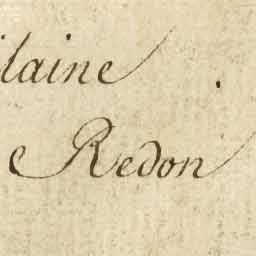 ilaine
e Redon